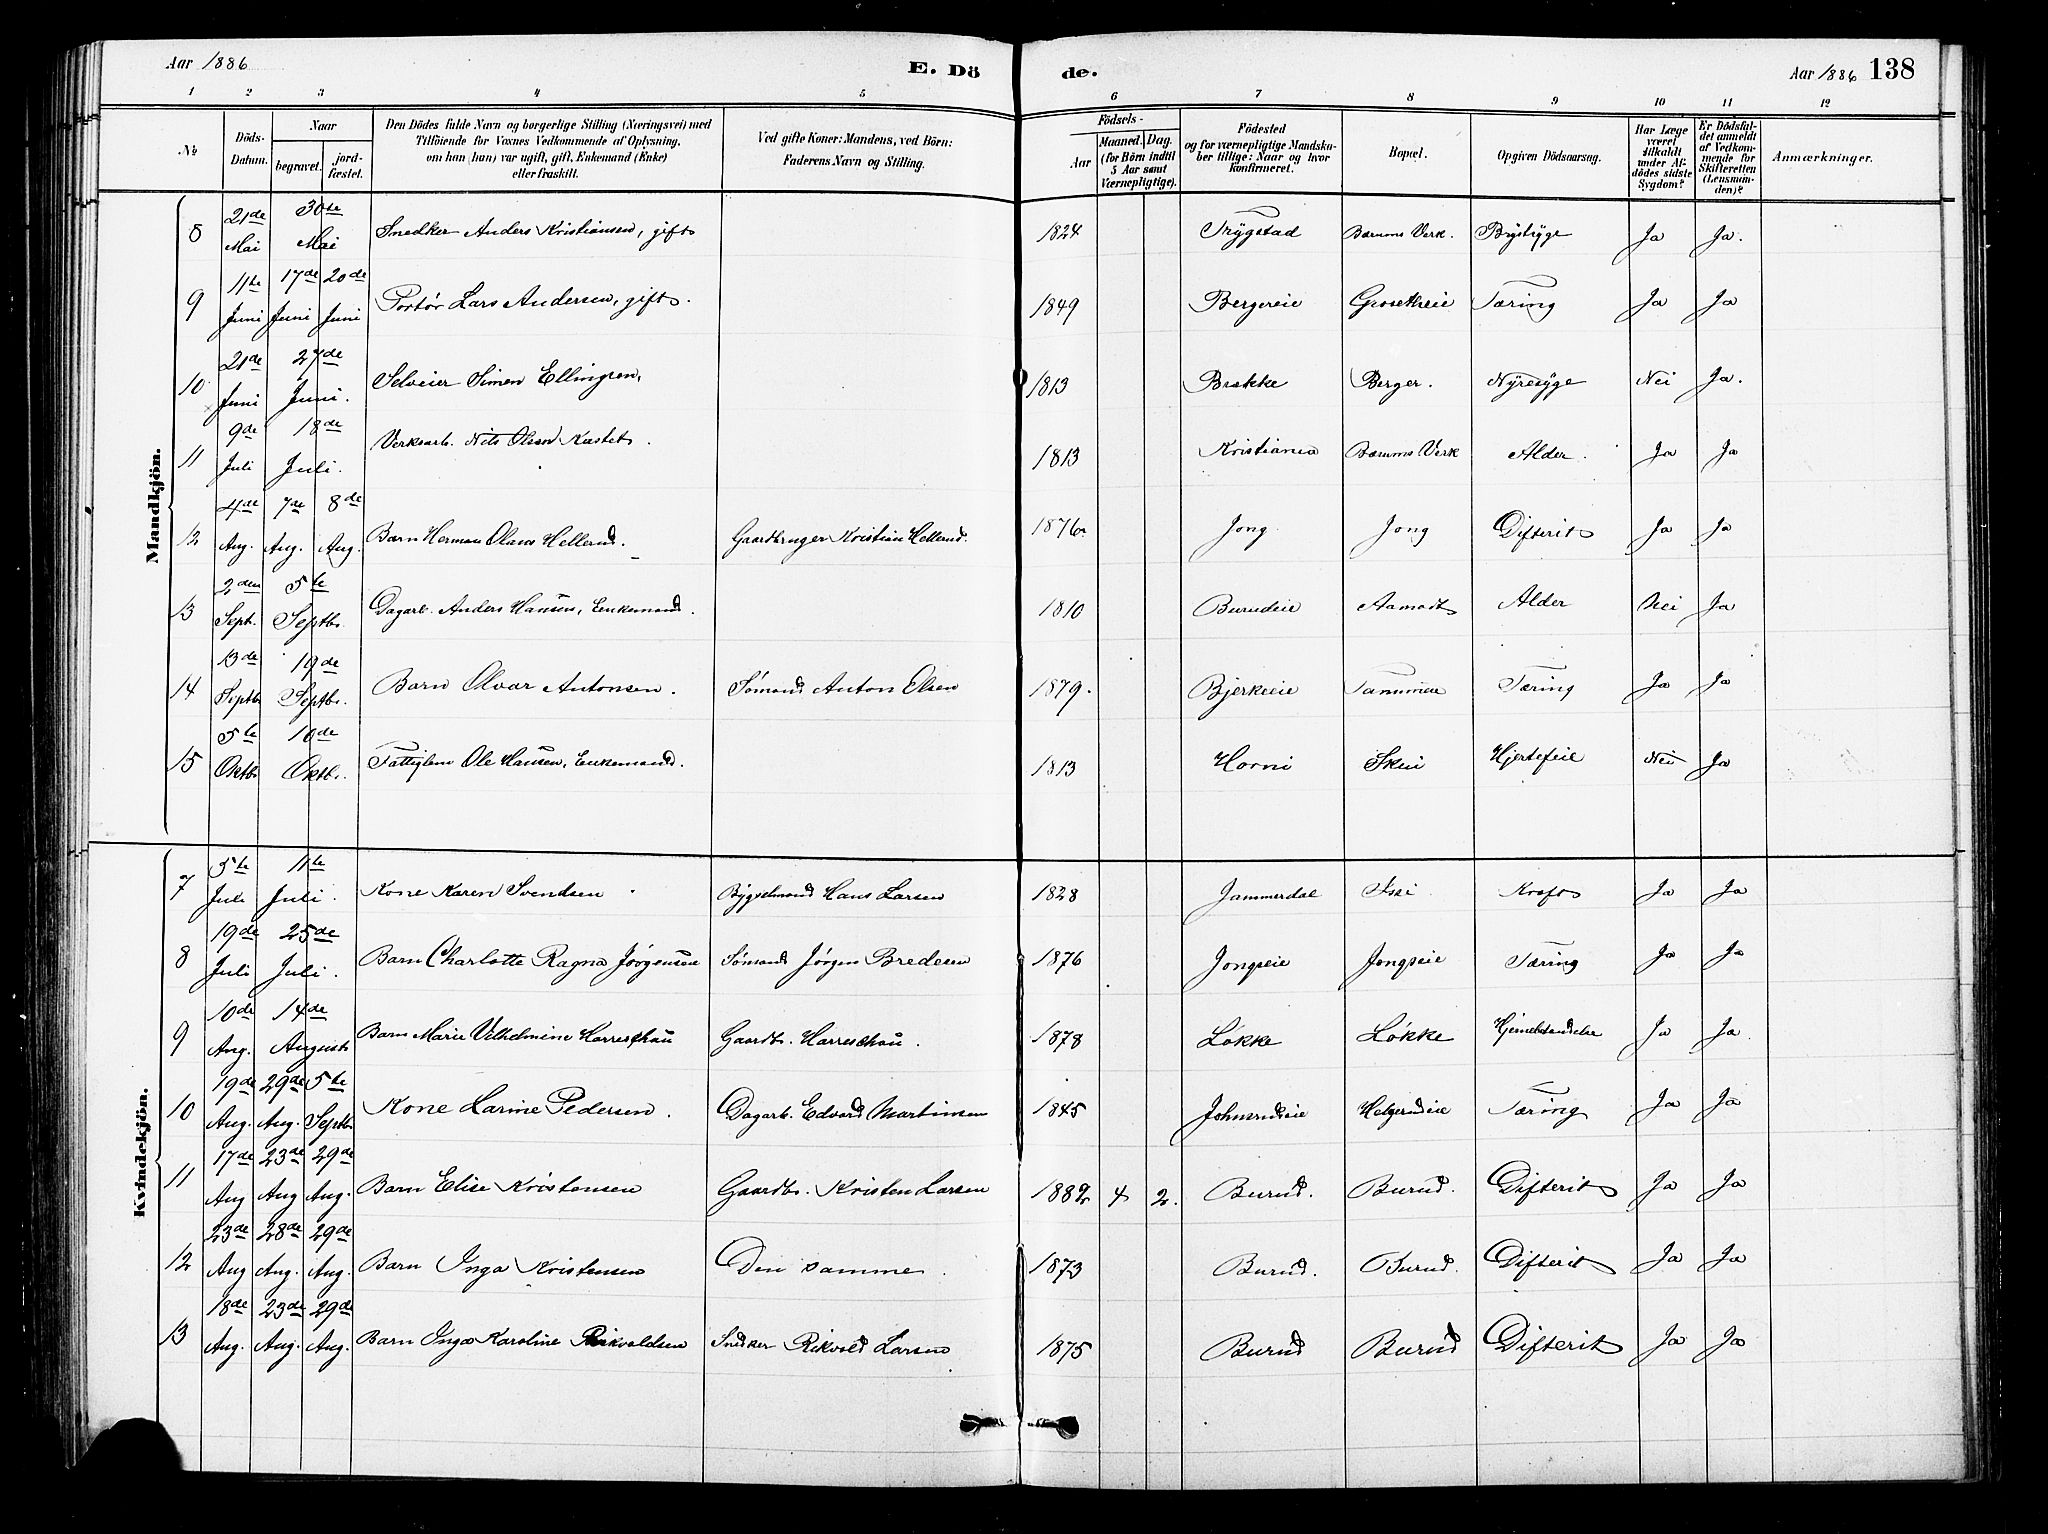 Aar 1886
E. Dö de.
Aar 1886 138
1 2 3 4 5 6 7 8 9 10 11 12
№
Döds-Datum.
Naar
begravet.
jord-fæstet.
Den Dödes fulde Navn og borgerlige Stilling (Næringsvei) med
Tilföiende for Voxnes Vedkommende af Oplysning,
om han (hun) var ugift, gift, Enkemand (Enke)
eller fraskilt.
Ved gifte Koner: Mandens, ved Börn:
Faderens Navn og Stilling.
Födsels-
Aar
Maaned. Dag.
(for Börn indtil
5 Aar samt
Værnepligtige).
Födested
og for værnepligtige Mandska-
ber tillige: Naar og hvor
konfirmeret.
Bopæl.
Opgiven Dödsaarsag.
Har Læge
været
tilkaldt
under Af-
dödes sidste
Sygdom?
Er Dödsfal-
det anmeldt
af Vedkom-
mende for
Skifteretten
(Lensman-
den)?
Anmærkninger.
Mandkjön.
8 21de Mai 30te Mai Snedker Anders Kristiansen, gift 1824 Trygstad Bærums Verk. Brystsyge Ja Ja.
9 11te Juni 17de Juni 20de Juni Portør Lars Andersen, gift. 1849 Bergereie Grosetheie Tæring Ja Ja
10 21de Juni 27de Juni. Selveier Simen Ellingsen, 1813 Brække Berger. Nyresyge Nei Ja.
11 9de Juli 18de Juli. Verksarb. Nils Olsen Kastet. 1813 Kristiania Bærums Verk Alder. Ja Ja
12 4de Aug. 7de Aug. 8de Aug. Barn Herman Olaus Hellerud. Gaardbruger Kristian Hellerud. 1876. Jong Jong Difterit Ja Ja
13 2den Sept. 5te Septbr. Dagarb. Anders Hansen, Enkemand. 1810 Burudeie Aamodt Alder Nei Ja
14 13de Septbr. 19de Septbr. Barn Olvar Antonsen. Sømand Anton Olsen 1879. Bjerkeeie Tanumeie Tæring Ja Ja
15 5te Oktbr. 10de Oktbr. Fattiglem Ole Hansen, Enkemand. 1813 Horni Skui Hjertefeil Nei Ja
Kvindekjön.
7 5te Juli 11te Juli. Kone Karen Svendsen Bygselmand Hans Larsen 1828 Jammerdal Isi Kræft Ja Ja
8 19de Juli 25de Juli. Barn Charlotte Ragna Jørgensen Sømand Jørgen Bredesen 1876 Jongseie Jongseie Tæring Ja Ja
9 10de Aug. 14de August Barn Marie Vilhelmine Harreschau Gaardbr. Harreschau. 1878 Løkke Løkke Hjernebetændelse Ja Ja
10 19de Aug. 29de Aug. 5te Septbr. Kone Larine Pedersen. Dagarb. Edvard Martinsen 1845 Johnsrudeie Helgerudeie Tæring Ja Ja
11 17de Aug 23de Aug 29de Aug. Barn Elise Kristensen Gaardbr. Kristen Larsen 1882 4 2. Burud. Burud. Difterit Ja Ja
12 23de Aug 28de Aug. 29de Aug. Barn Inga Kristensen Den samme. 1873 Burud. Burud. Difterit Ja Ja
13 18de Aug. 23de Aug. 29de Aug. Barn Inga Karoline Rikvaldsen Snedker Rikvold Larsen 1875 Burud Burud Difterit Ja Ja